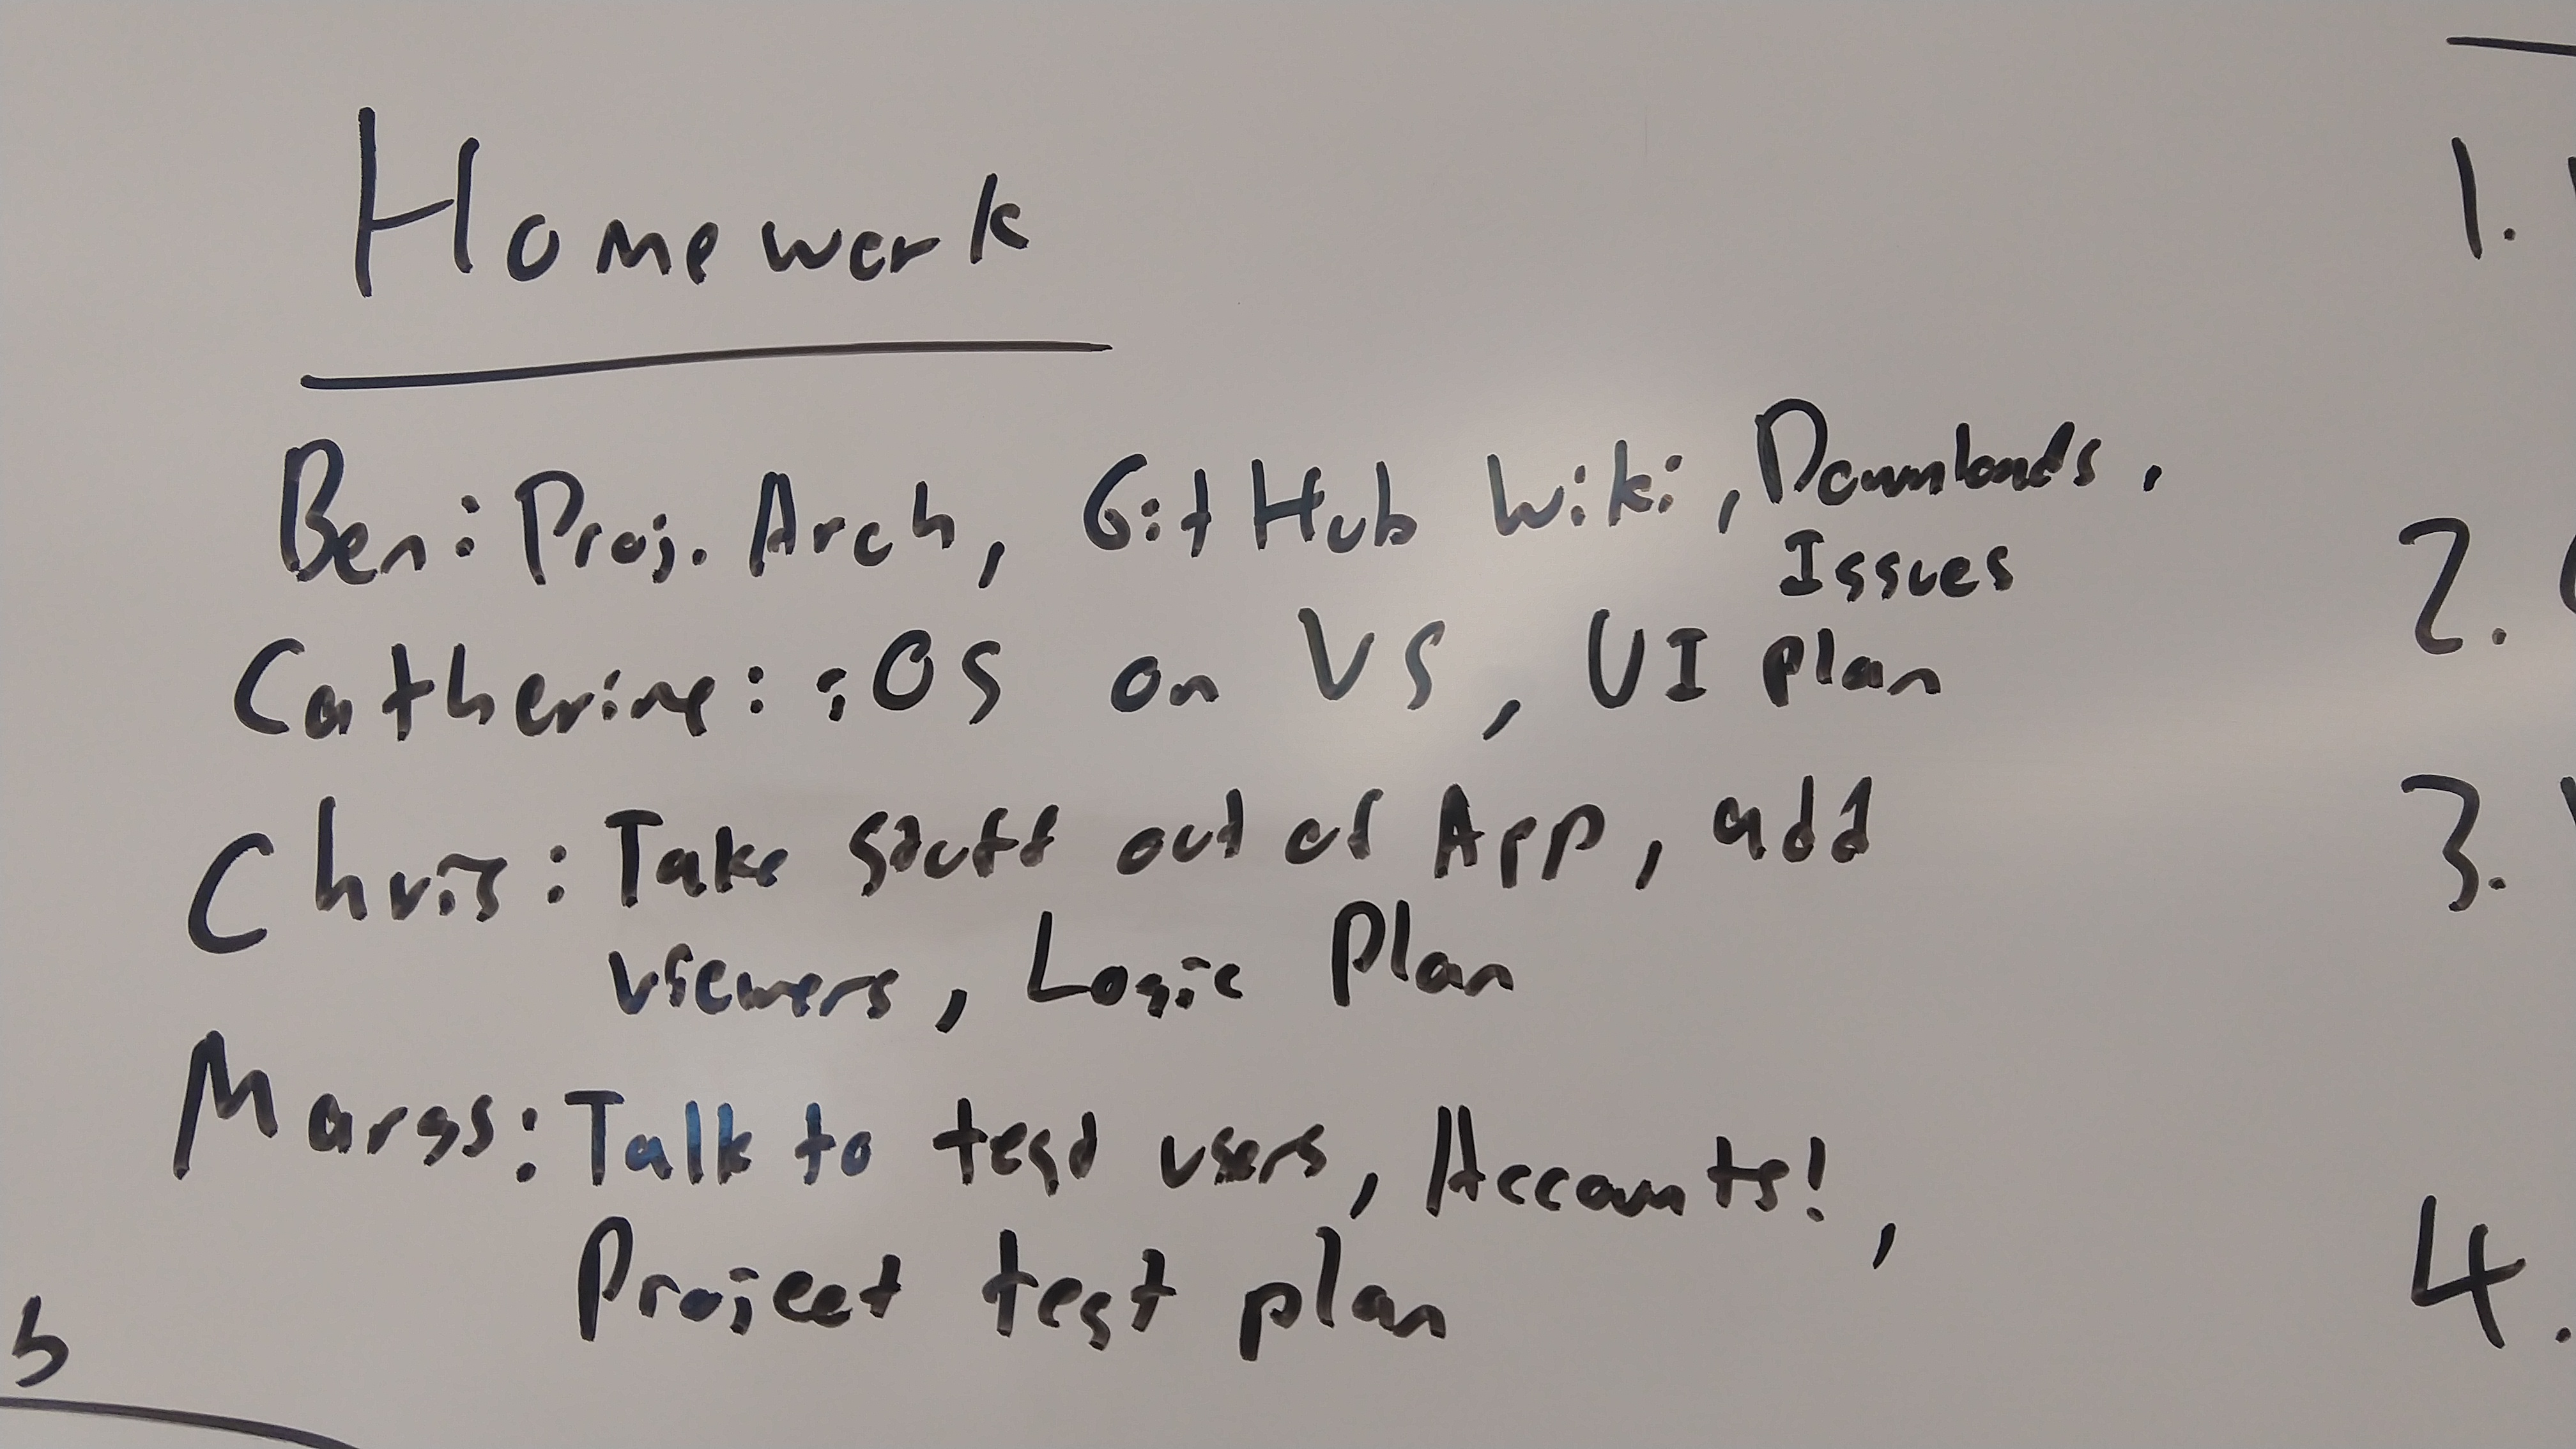 Homework
Ben: Proj. Arch, GitHub Wiki, Downloads,
Issues
Catherine: iOS on VS, UI plan
Chris: Take stuff out of App, add
viewers, Logic Plan
Margs: Talk to test users, Accounts!,
Project test plan
1.
2.
3.
4.